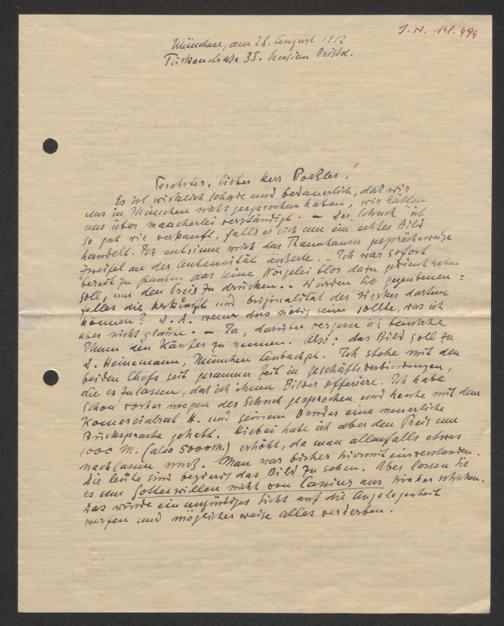 J. N. 148.494
München, am 28. August 1917
Türkenstraße 35. Pension
Geehrter, lieber Herr Roeßler!
Es ist wirklich schade und bedauerlich, daß wir
uns in München nicht gesprochen haben, wir hätten
uns über mancherlei verständigt. – Der Schuch ist
so gut wie verkauft, falls es sich um ein echtes Bild
handelt. Ich entsinne mich das Thannhauser gesprächsweise
Zweifel an der Autentizität äußerte. Ich war sofort
bereit zu glauben das seine Nörgelei blos dazu gedient haben
soll, um den Preis zu drücken. – Würden Sie gegebenen=
falles die Herkunft und Originalität des Werkes dartun
können? D. h. wenn dies nötig sein sollte, was ich
aber nicht glaube. – Ja, darüber vergesse ich beinahe
Ihnen den Käufer zu nennen. Also: das Bild soll zu
D. Heinemann, München Lenbachpl. Ich stehe mit den
beiden Chefs seit geraumer Zeit in Geschäftsverbindungen,
die es zulassen, daß ich ihnen Bilder offeriere. Ich habe
schon vorher wegen des Schuch gesprochen und heute mit dem
Komerzialrat H. und seinem Bruder eine neuerliche
Rücksprache gehabt. Hiebei habe ich aber den Preis um
1000 M. (also 5000 M.) erhöht, da man allenfalls etwas
nachlassen muß. Man war bisher hiermit einverstanden.
Die Leute sind begierig das Bild zu sehen. Aber lassen Sie
es um Gotteswillen nicht von Cassirer aus hieher schicken.
Das würde ein ungünstiges Licht auf die Angelegenheit
werfen und möglicherweise alles verderben.